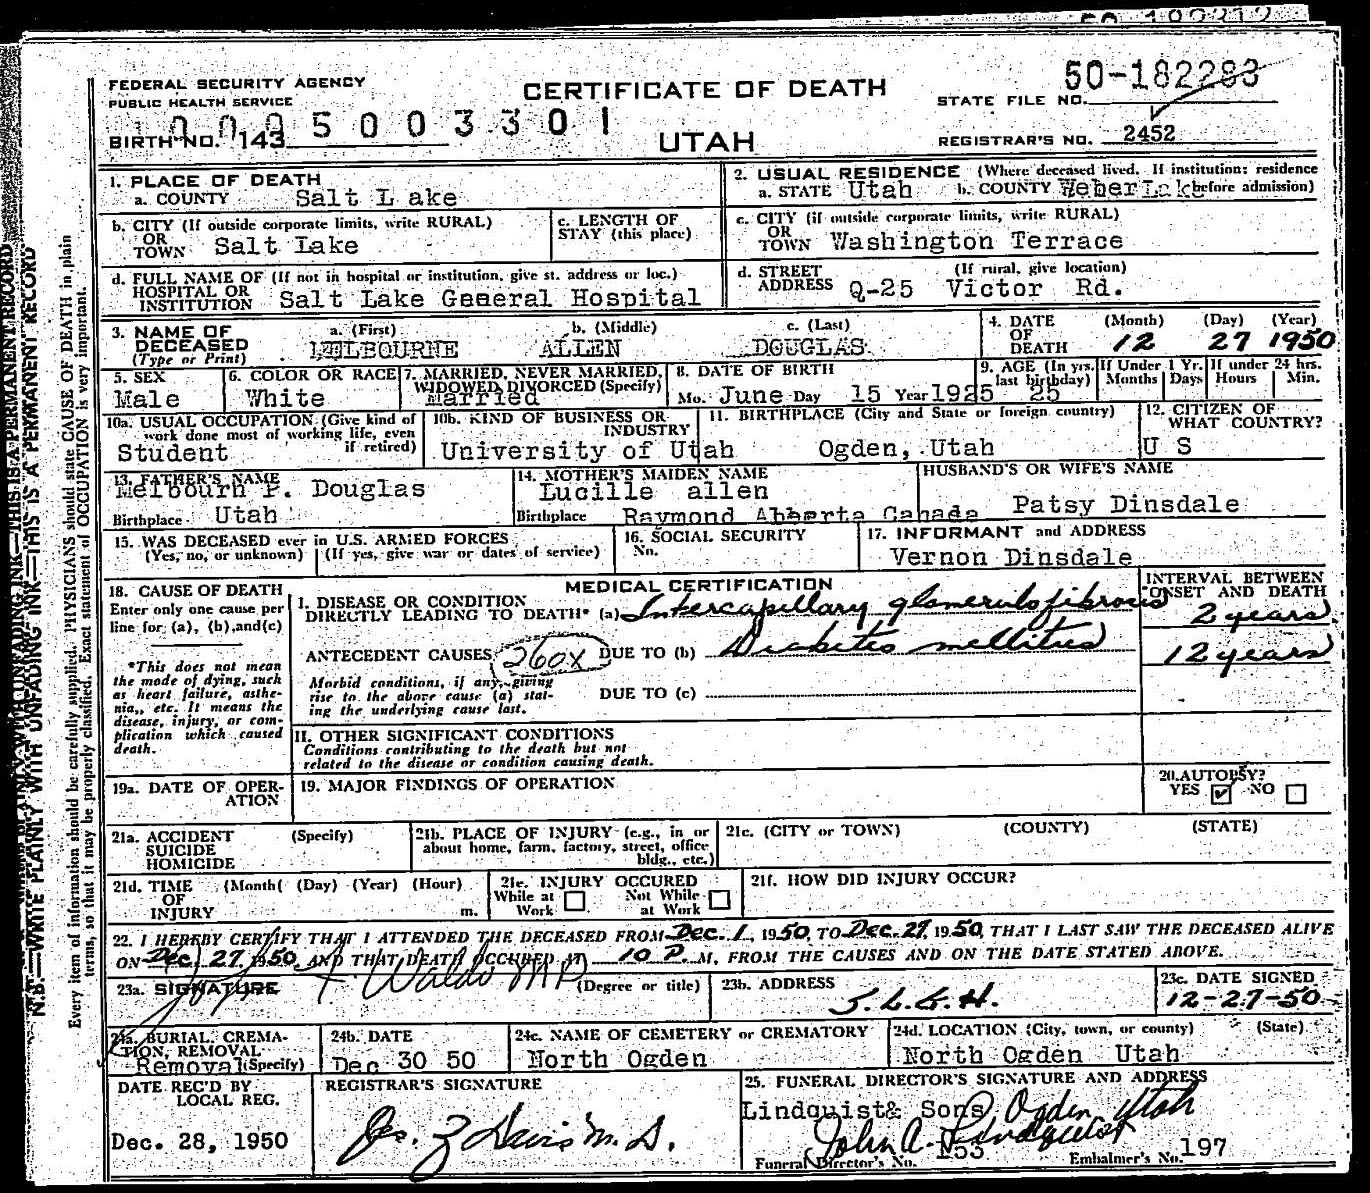 FEDERAL SECURITY AGENCY
PUBLIC HEALTH SERVICE
CERTIFICATE OF DEATH
UTAH
STATE FILE NO. 50-182283
REGISTRAR'S NO. 2452
5003301
BIRTH NO. 143
1. PLACE OF DEATH
a. COUNTY Salt Lake
b. CITY (If outside corporate limits, write RURAL)
OR
TOWN Salt Lake
c. LENGTH OF
STAY (this place)
d. FULL NAME OF (If not in hospital or institution, give st. address or loc.)
HOSPITAL OR
INSTITUTION Salt Lake General Hospital
2. USUAL RESIDENCE (Where deceased lived. If institution: residence
a. STATE Utah b. COUNTY Weber before admission)
c. CITY (if outside corporate limits, write RURAL)
OR
TOWN Washington Terrace
d. STREET (If rural, give location)
ADDRESS Q-25 Victor Rd.
3. NAME OF a. (First) b. (Middle) c. (Last)
DECEASED MELBOURNE ALLEN DOUGLAS
(Type or Print)
4. DATE (Month) (Day) (Year)
OF
DEATH 12 27 1950
5. SEX
Male
6. COLOR OR RACE
White
7. MARRIED, NEVER MARRIED,
WIDOWED, DIVORCED (Specify)
Married
8. DATE OF BIRTH
Mo. June Day 15 Year 1925
9. AGE (In yrs. last birthday) 25
If Under 1 Yr. Months Days
If under 24 hrs. Hours Min.
10a. USUAL OCCUPATION (Give kind of
work done most of working life, even
if retired)
Student
10b. KIND OF BUSINESS OR
INDUSTRY
University of Utah
11. BIRTHPLACE (City and State or foreign country)
Ogden, Utah
12. CITIZEN OF
WHAT COUNTRY?
U S
13. FATHER'S NAME
Melbourn P. Douglas
Birthplace Utah
14. MOTHER'S MAIDEN NAME
Lucille allen
Birthplace Raymond Alberta Canada
HUSBAND'S OR WIFE'S NAME
Patsy Dinsdale
15. WAS DECEASED ever in U.S. ARMED FORCES
(Yes, no, or unknown) (If yes, give war or dates of service)
16. SOCIAL SECURITY
No.
17. INFORMANT and ADDRESS
Vernon Dinsdale
18. CAUSE OF DEATH
Enter only one cause per
line for (a), (b), and (c)
*This does not mean
the mode of dying, such
as heart failure, asthe-
nia, etc. It means the
disease, injury, or com-
plication which caused
death.
MEDICAL CERTIFICATION
I. DISEASE OR CONDITION
DIRECTLY LEADING TO DEATH* (a) Intercapillary glomerulofibrosis
ANTECEDENT CAUSES 260X DUE TO (b) Diabetes mellitus
Morbid conditions, if any, giving
rise to the above cause (a) stat-
ing the underlying cause last.
DUE TO (c)
INTERVAL BETWEEN
ONSET AND DEATH
2 years
12 years
II. OTHER SIGNIFICANT CONDITIONS
Conditions contributing to the death but not
related to the disease or condition causing death.
19a. DATE OF OPER-
ATION
19. MAJOR FINDINGS OF OPERATION
20. AUTOPSY?
YES ✔ NO
21a. ACCIDENT (Specify)
SUICIDE
HOMICIDE
21b. PLACE OF INJURY (e.g., in or
about home, farm, factory, street, office
bldg., etc.)
21c. (CITY or TOWN) (COUNTY) (STATE)
21d. TIME (Month) (Day) (Year) (Hour)
OF
INJURY m.
21e. INJURY OCCURED
While at Work Not While at Work
21f. HOW DID INJURY OCCUR?
22. I HEREBY CERTIFY THAT I ATTENDED THE DECEASED FROM Dec. 1, 1950, TO Dec. 27, 1950, THAT I LAST SAW THE DECEASED ALIVE
ON Dec. 27, 1950, AND THAT DEATH OCCURED AT 10 P. M, FROM THE CAUSES AND ON THE DATE STATED ABOVE.
23a. SIGNATURE F. Waldo MD (Degree or title)
23b. ADDRESS
S.L.G.H.
23c. DATE SIGNED
12-27-50
24a. BURIAL, CREMA-
TION, REMOVAL
Removal (Specify)
24b. DATE
Dec 30 50
24c. NAME OF CEMETERY or CREMATORY
North Ogden
24d. LOCATION (City, town, or county) (State)
North Ogden Utah
DATE REC'D BY
LOCAL REG.
Dec. 28, 1950
REGISTRAR'S SIGNATURE
Jas. Z Davis M.D.
25. FUNERAL DIRECTOR'S SIGNATURE AND ADDRESS
Lindquist & Sons Ogden, Utah
John A. Lindquist
Funeral Director's No. 153 Embalmer's No. 197
N.B.—WRITE PLAINLY WITH UNFADING INK—THIS IS A PERMANENT RECORD
Every item of information should be carefully supplied. PHYSICIANS should state CAUSE OF DEATH in plain
terms, so that it may be properly classified. Exact statement of OCCUPATION is very important.